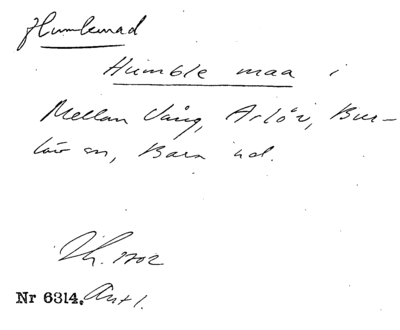 Humlemad
Humble maa i
Mellan Vång, Arlöv, Bur-
löv sn, Bara hd.
Th. 1702
Nr 6314. Ant 1.